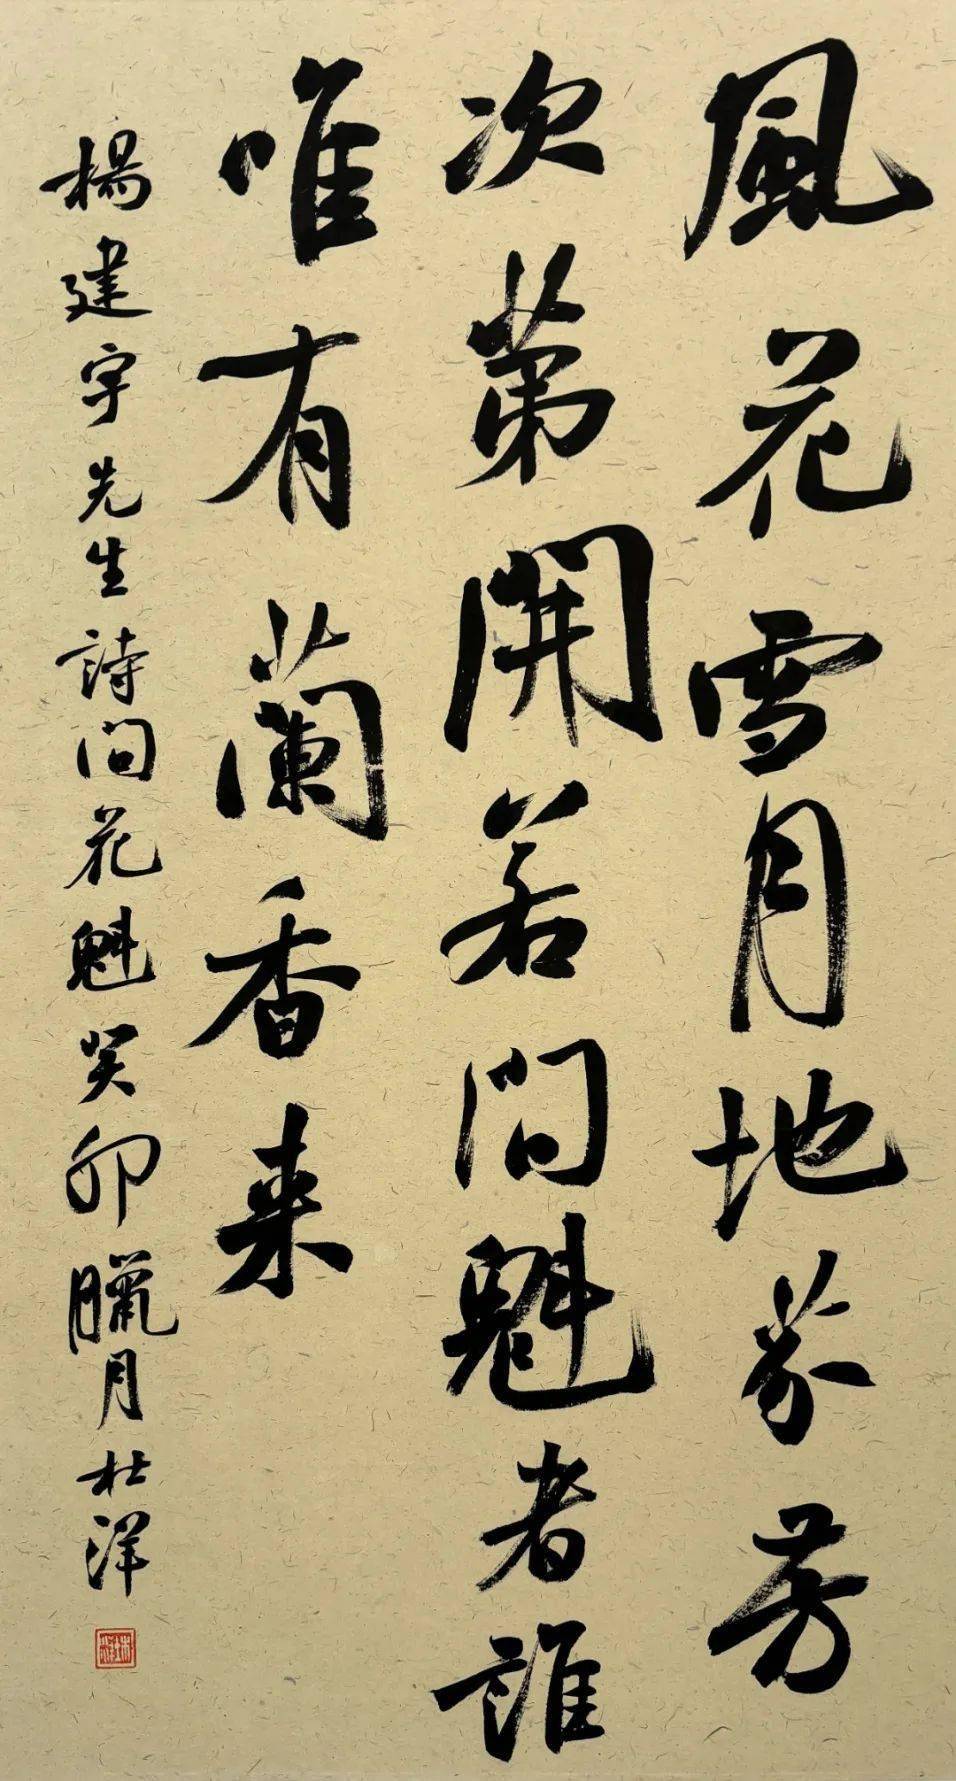 風花雪月地芬芳
次第開若問魁者誰
唯有蘭香来
楊建宇先生詩問花魁癸卯臘月杜洋